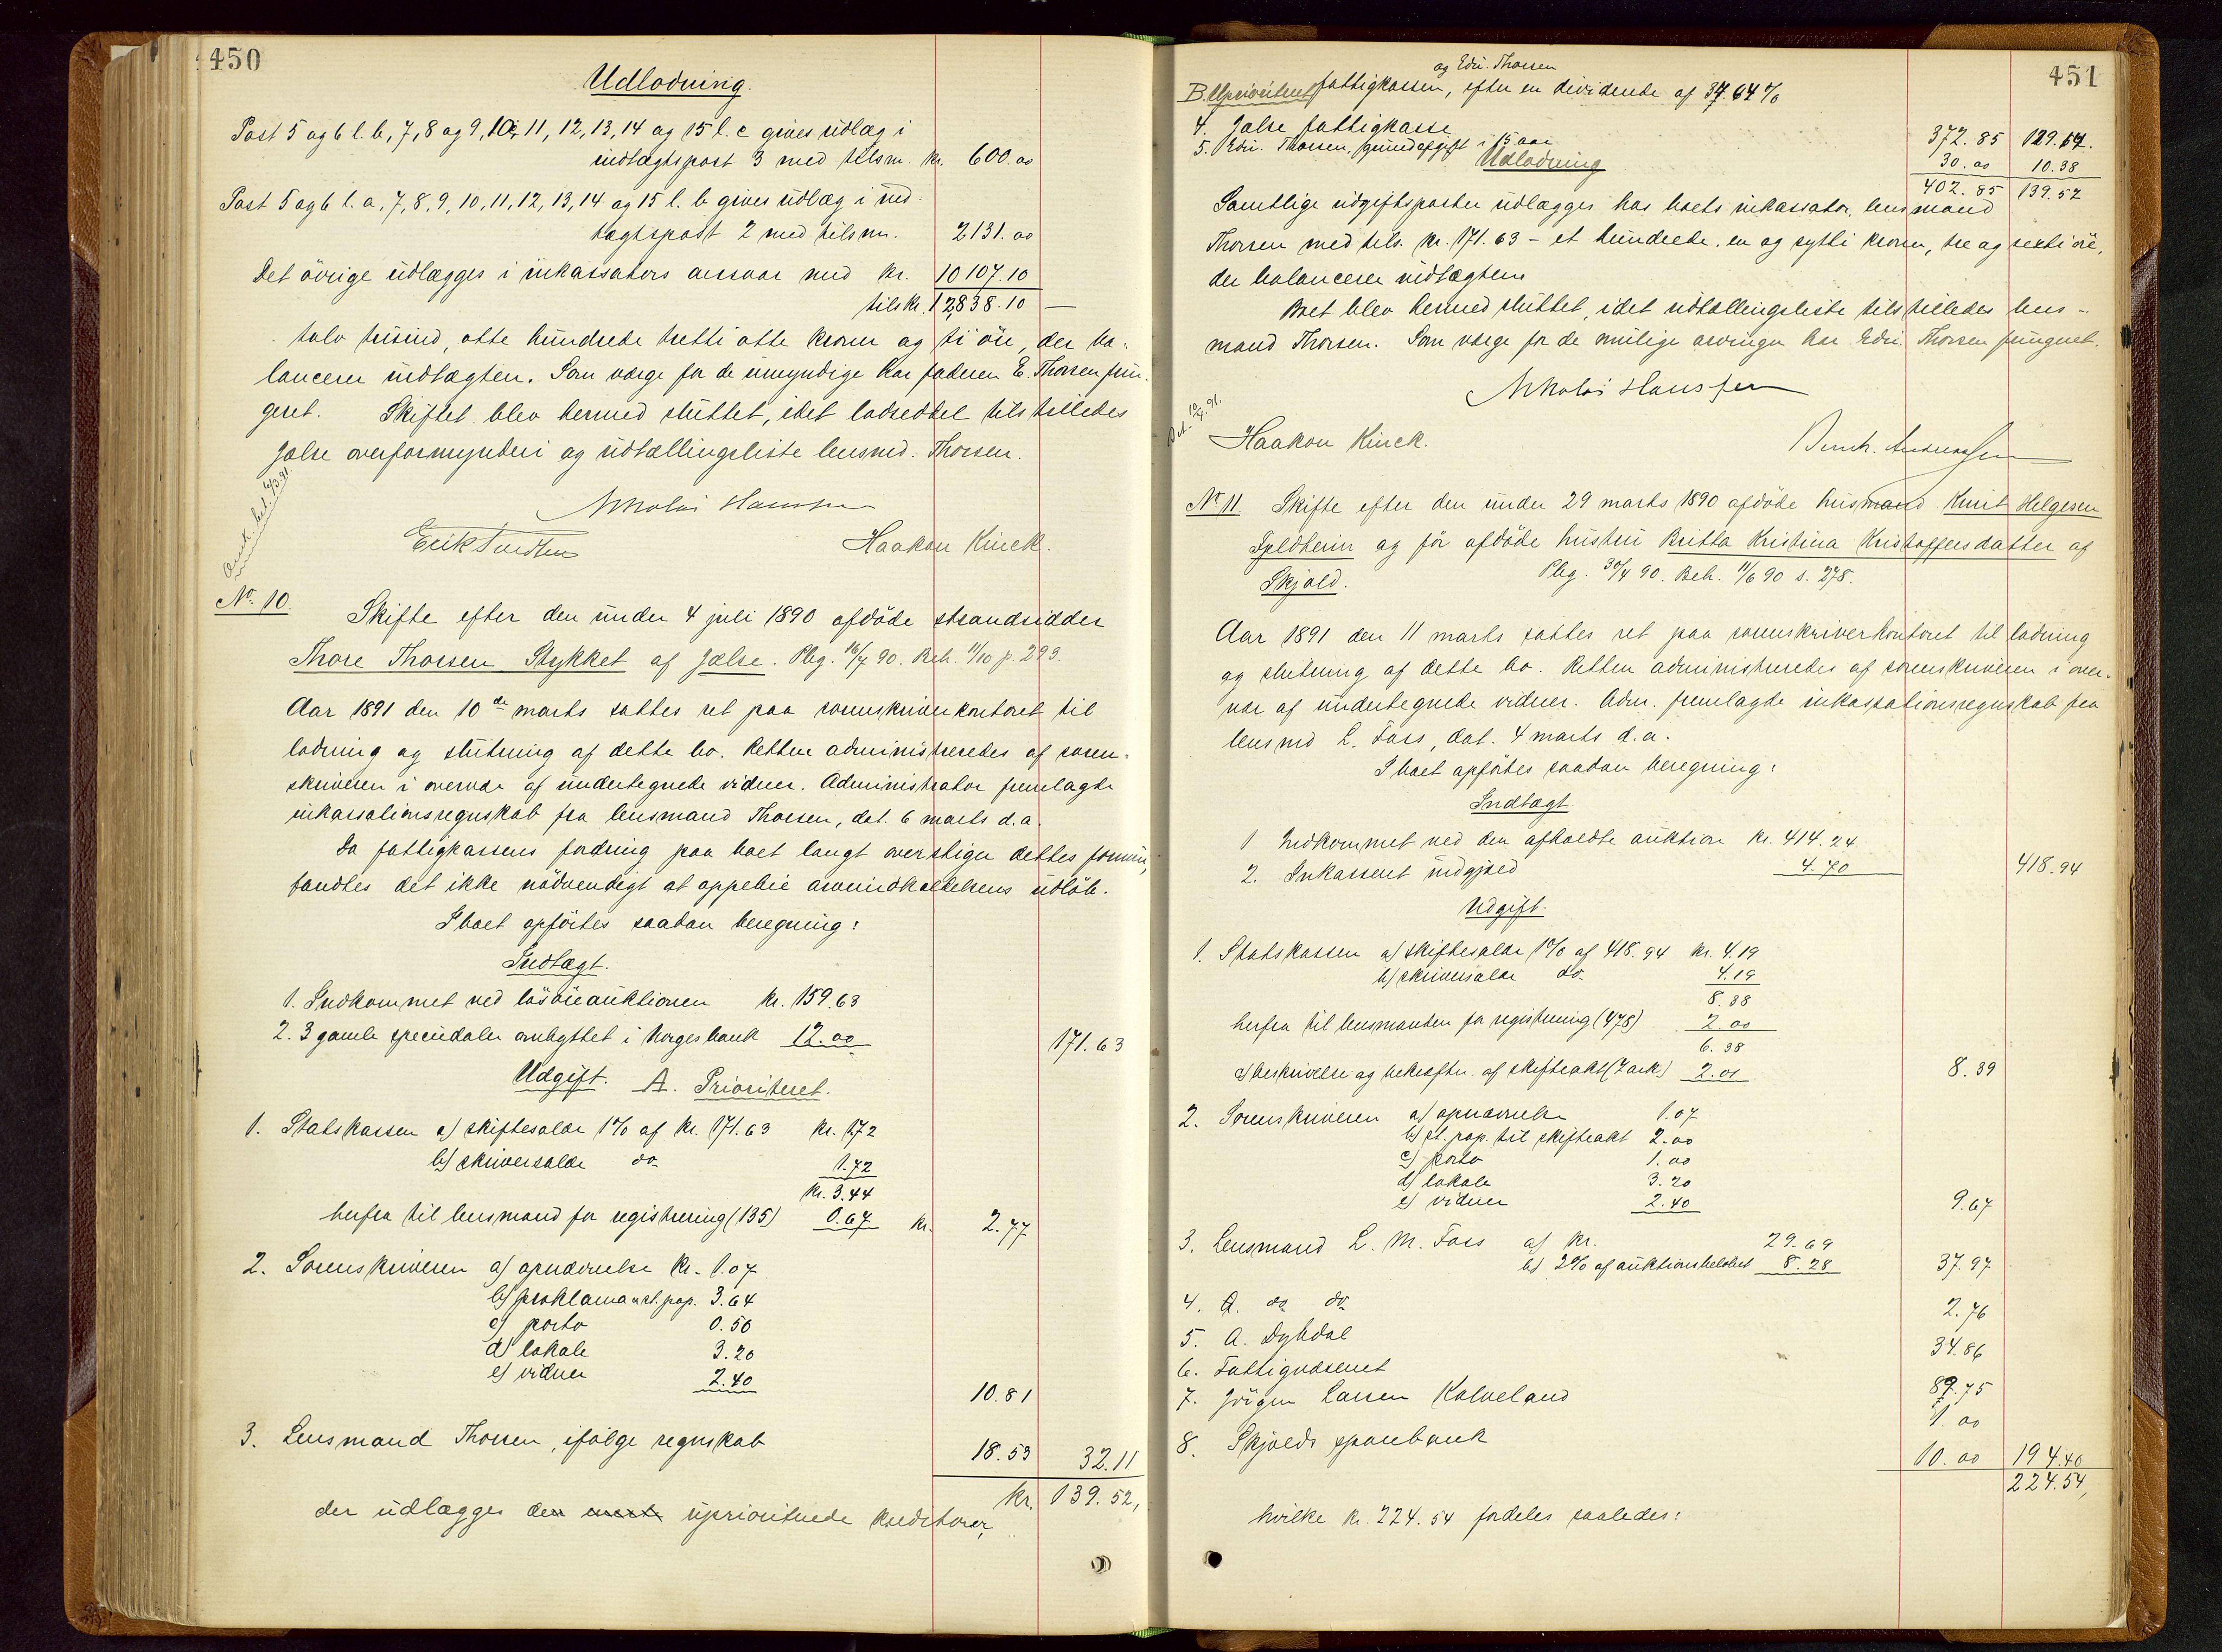 450
Udlodning.
Post 5 og 6 l. b, 7, 8 og 9, 10, 11, 12, 13, 14 og 15 l. c gives udlæg i
indtægtspost 3 med tilsm. kr. 600.00
Post 5 og 6 l. a, 7, 8, 9, 10, 11, 12, 13, 14 og 15 l. b gives udlæg i ind-
tægtspost 2 med tilsm. 2131.00
Det övrige udlægges i inkassators ansvar med kr. 10107.10
tils kr. 12,838.10 —
tolv tusind, otte hundrede tretti otte kroner og ti öre, der ba-
lancerer indtægten. Som værge for de umyndige har faderen E. Thorsen fun-
geret. Skiftet blev hermed sluttet, idet lodseddel tilstilledes
Jælse overformynderi og udtællingsliste lensmd. Thorsen.
Nikolai Hanssen
Haakon Kinck.
No. 10.
Skifte efter den under 4 juli 1890 afdöde strandsidder
Thore Thorsen Stykket af Jælse. Pbg. 16/7 90. Beh. 11/10 p. 293.
Aar 1891 den 10de marts sattes ret paa sorenskriverkontoret til
lodning og slutning af dette bo. Retten administreredes af soren-
skriveren i overvær af undertegnede vidner. Administrator fremlagde
inkassationsregnskab fra lensmand Thorsen, dat. 6 marts d.a.
Da fattigkassens fordring paa boet langt overstiger dettes formue,
fandtes det ikke nödvendigt at oppebie arveindkaldelsens udlöb.
I boet opförtes saadan beregning:
Indtægt.
1. Indkommet ved lösöreauktionen kr. 159.63
2. 3 gamle speciedaler ombyttet i Norges bank 12.00 171.63
Udgift. A. Prioriteret.
1. Statskassen a) skiftesalær 1% af kr. 171.63 kr. 1.72
b) skriversalær do 1.72
kr. 3.44
herfra til lensmand for registrering (135) 0.67 kr. 2.77
2. Sorenskriveren a) opnævnelse kr. 1.07
b) proklama m st. pap. 3.64
c) porto 0.50
d) lokale 3.20
e) vidner 2.40
10.81
3. Lensmand Thorsen, ifölge regnskab 18.53 32.11
kr. 139.52,
der udlægges den uprioriterede kreditorer,
451
og Edv. Thorsen
B. Uprioriteret fattigkassen, efter en dividende af 34.64%
4. Jælse fattigkasse 372.85 129.14.
5. Edv. Thorsen, grundafgift i 15 aar 30.00 10.38
402.85 139.52
Udlodning
Samtlige udgiftsposter udlægges hos boets inkassator, lensmand
Thorsen med tils. kr. 171.63 – et hundrede, en og sytti kroner, tre og sexti öre,
der balancerer indtægten
Boet blev hermed sluttet, idet udtællingsliste tilstilledes lens-
mand Thorsen. Som værge for de mulige arvinger har Edv. Thorsen fungeret.
Nikolai Hanssen
Haakon Kinck.
No 11. Skifte efter den under 29 marts 1890 afdöde husmand Knut Helgesen
og för afdöde hustru Britta Kristina Kristoffersdatter af
Skjold. Pbg. 30/4 90. Beh. 11/6 90 s. 278.
Aar 1891 den 11 marts sattes ret paa sorenskriverkontoret til lodning
og slutning af dette bo. Retten administreredes af sorenskriveren i over-
vær af undertegnede vidner. Adm. fremlagde inkassationsregnskab fra
lensmd L. Foss, dat. 4 marts d.a.
I boet opförtes saadan beregning:
Indtægt.
1 Indkommet ved den afholdte auktion kr. 414.24
2. Inkasseret indgjæld 4.70 418.94
Udgift.
1. Statskassen a) skiftesalær 1% af 418.94 kr. 4.19
b) skriversalær do. 4.19
8.38
herfra til lensmanden for registrering (478) 2.00
6.38
c) beskrivelse og bekræftn. af skifteakt (7 ark) 2.01 8.39
2. Sorenskriveren a) opnævnelse 1.07
b) st. pap. til skifteakt 2.00
c) porto 1.00
d) lokale 3.20
e) vidner 2.40 9.67
3. Lensmand L. M. Foss a) kr. 29.69
b) 2% af auktionsbelöbet 8.28 37.97
4. A. do do 2.76
5. A. Dybdal 34.86
6. Fattigvæsenet 89.75
7. Jörgen Larsen Kalveland 1.00
8. Skjolds sparebank 10.00 194.40
224.54,
hvilke kr. 224.54 fordeles saaledes: